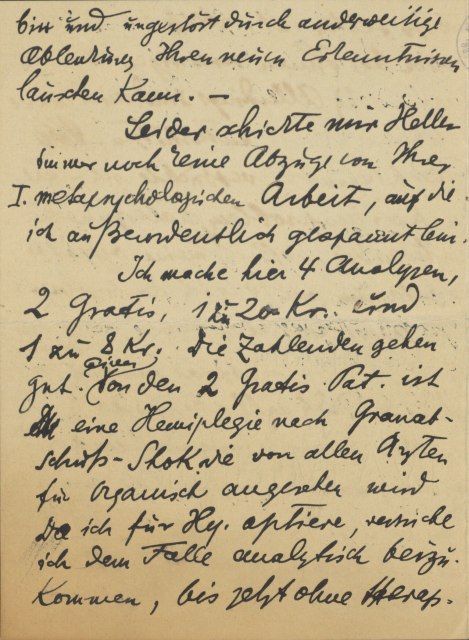 bin und ungestört durch anderweitige
Ablenkung Ihren neuen Erkenntnissen
lauschen kann. —
Leider schickte mir Heller
immer noch keine Abzüge von Ihrer
I. metapsychologischen Arbeit, auf die
ich außerordentlich gespannt bin.
Ich mache hier 4 Analysen,
2 Gratis, 1 zu 20 Kr. und
1 zu 8 Kr. Die Zahlenden gehen
gut. Von den 2 Gratis Pat. ist
einer
eine Hemiplegie nach Granat-
schuß-Shok die von allen Ärzten
für organisch angesehen wird
Da ich für Hy. optiere, versuche
ich dem Falle analytisch beizu-
kommen, bis jetzt ohne therap-